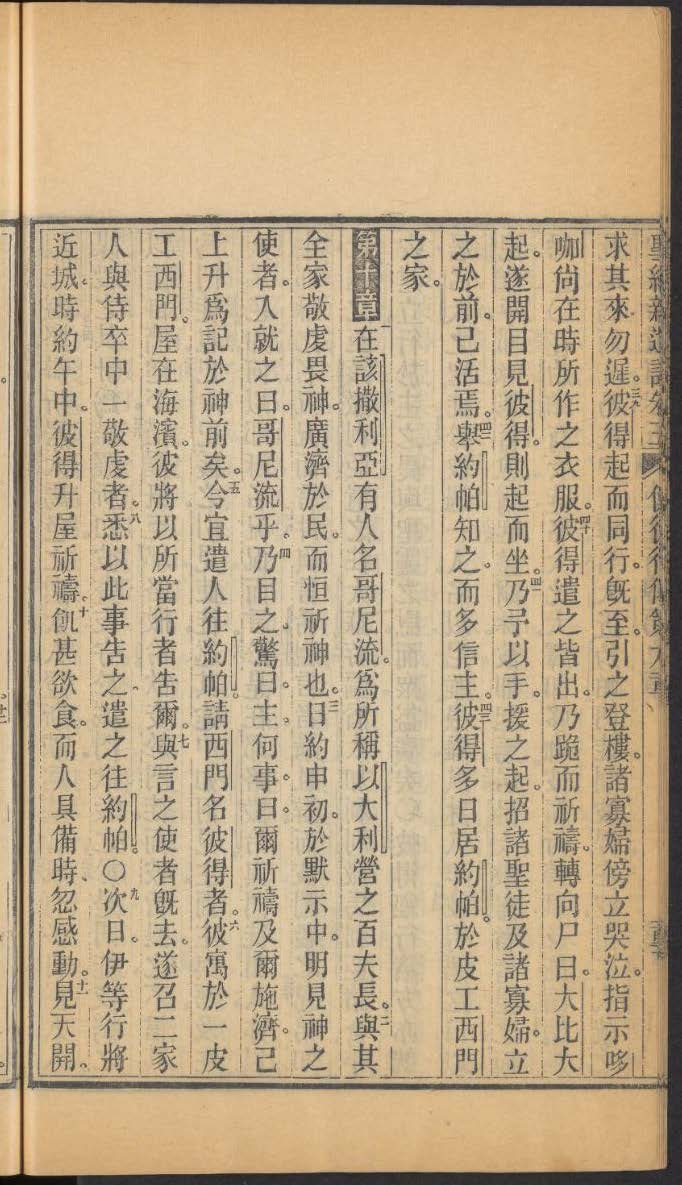 求其來勿遲。三九彼得起而同行。既至。引之登樓。諸寡婦傍立哭泣。指示哆
咖尚在時所作之衣服。四十彼得遣之皆出。乃跪而祈禱。轉向尸曰。大比大
起。遂開目見彼得。則起而坐。四一乃予以手。援之起。招諸聖徒及諸寡婦。立
之於前。已活焉。四二舉約帕知之。而多信主。四三彼得多日居約帕。於皮工西門
之家。
第十章 一在該撒利亞有人名哥尼流。爲所稱以大利營之百夫長。二與其
全家敬虔畏神。廣濟於民。而恒祈神也。三日約申初。於默示中。明見神之
使者。入就之曰。哥尼流乎。四乃目之。驚曰。主。何事。曰。爾祈禱及爾施濟。已
上升爲記於神前矣。五今宜遣人往約帕。請西門名彼得者。六彼寓於一皮
工西門。屋在海濱。彼將以所當行者告爾。七與言之使者既去。遂召二家
人與侍卒中一敬虔者。八悉以此事告之。遣之往約帕。〇九次日。伊等行將
近城。時約午中。彼得升屋祈禱。十飢甚欲食。而人具備時、忽感動。十一見天開。